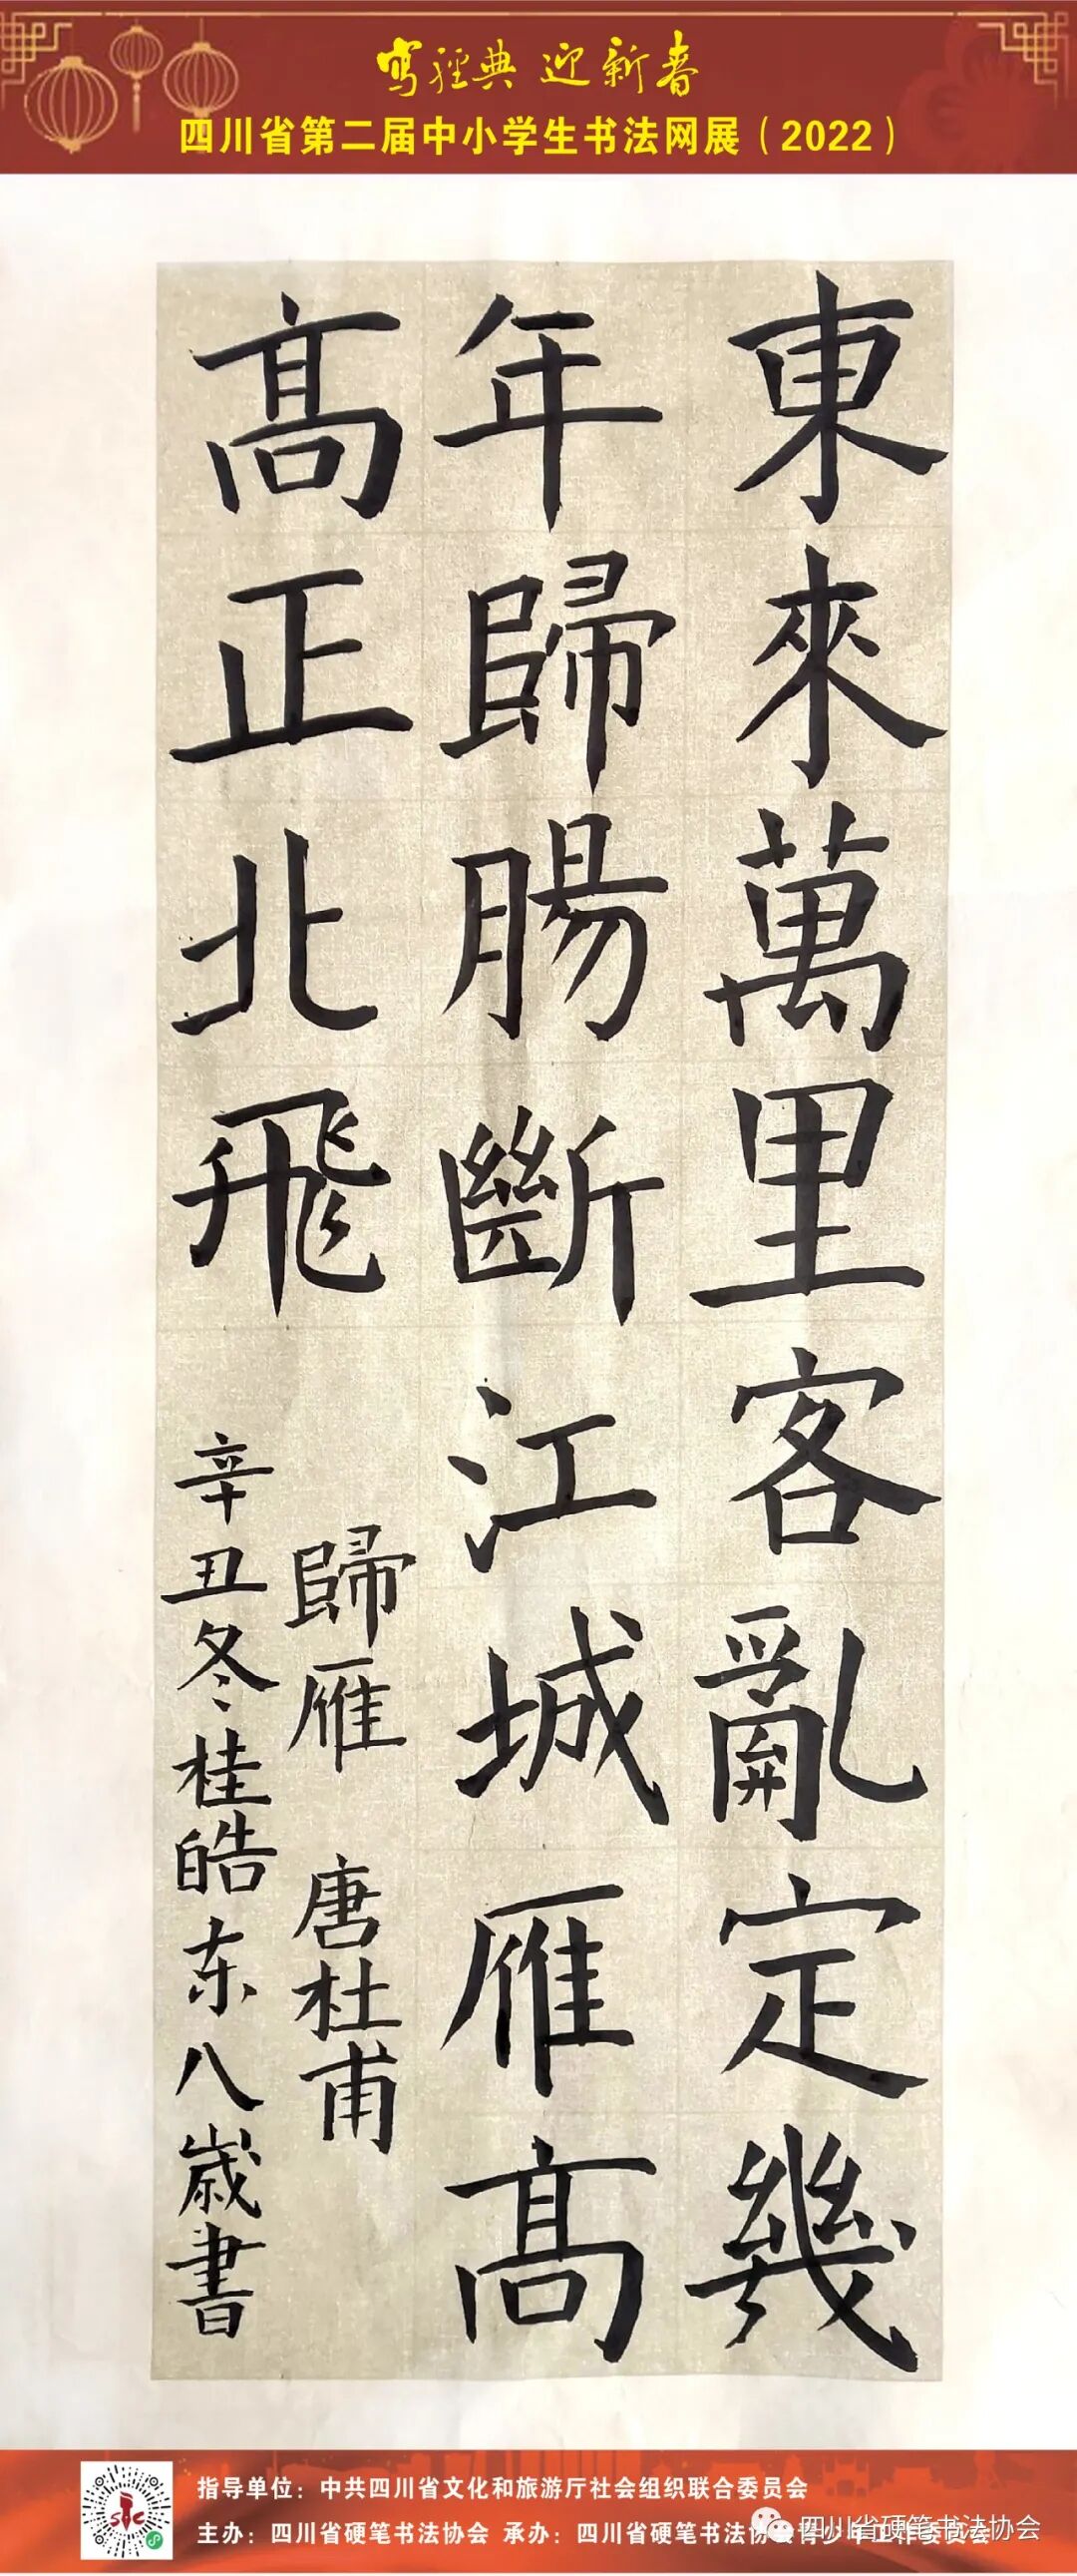 写經典 迎新春
四川省第二届中小学生书法网展（2022）
東來萬里客亂定幾
年歸腸斷江城雁高
高正北飛
歸雁 唐杜甫
辛丑冬桂皓东八歲書
指导单位：中共四川省文化和旅游厅社会组织联合委员会
主办：四川省硬笔书法协会 承办：四川省硬笔书法协会青少年工作委员会
四川省硬笔书法协会